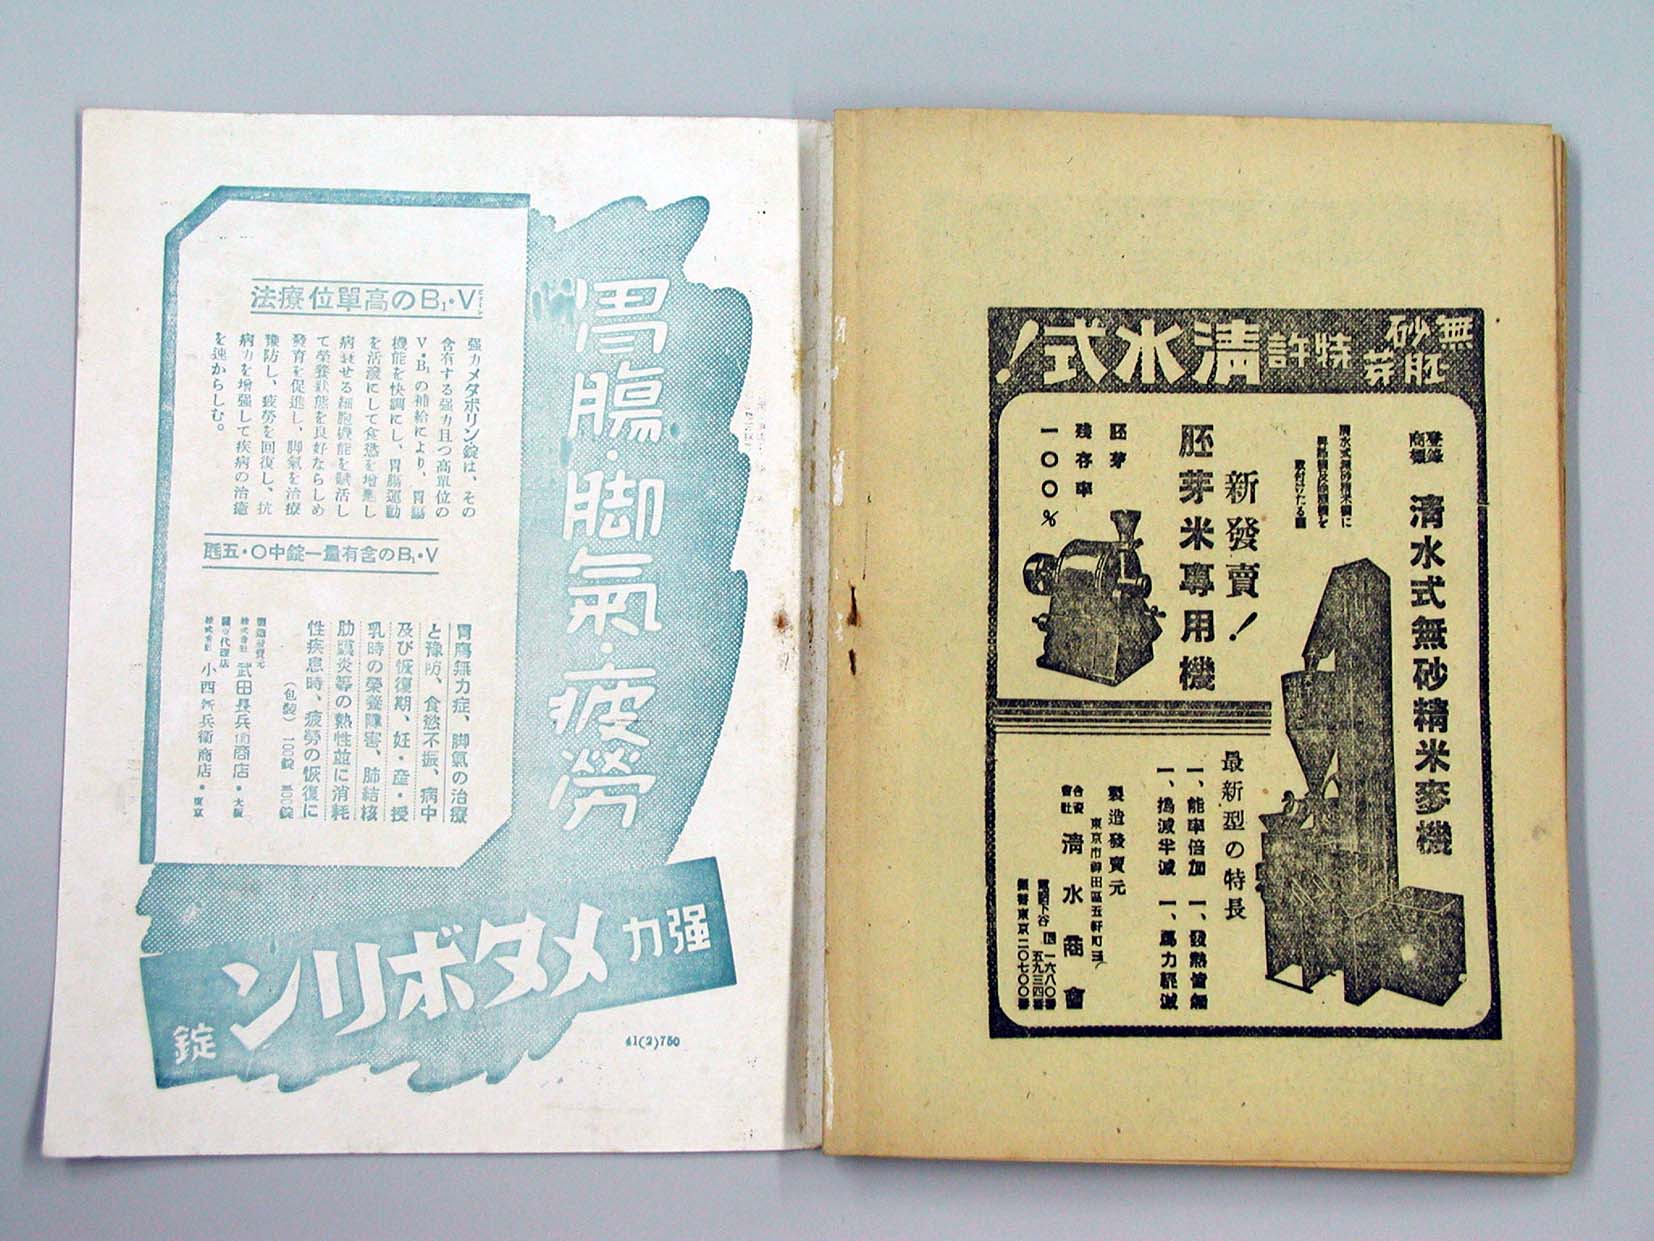 胃腸・脚氣・疲勞
V・B₁の高單位療法
强力メタボリン錠は、その
含有する强力且つ高單位の
V・B₁の補給により、胃腸
機能を快調にし、胃腸運動
を活潑にして食慾を增進し
病衰せる細胞機能を賦活し
て榮養狀態を良好ならしめ
發育を促進し、脚氣を治療
豫防し、疲勞を回復し、抗
病力を增强して疾病の治癒
を速からしむ。
V・B₁の含有量一錠中〇・五瓱
胃腸無力症、脚氣の治療
と豫防、食慾不振、病中
及び恢復期、妊・産・授
乳時の榮養障害、肺結核
肋膜炎等の熱性並に消耗
性疾患時、疲勞の恢復に
(包裝) 100錠
製造發賣元
株式會社 武田長兵衞商店・大阪
關東代理店
株式會社 小西新兵衞商店・東京
强力
メタボリン
錠
41(2)750
無砂
胚芽
特許
淸水式!
登錄
商標
淸水式無砂精米麥機
淸水式無砂精米機に
取付けたる圖
新發賣!
胚芽米專用機
胚芽
殘存率
一〇〇%
最新型の特長
一、能率倍加 一、發熱皆無
一、搗減半減 一、馬力輕減
製造發賣元
東京市神田區五軒町
合資
會社
淸水商會
電話下谷
一六八〇番
五九三四番
振替東京二〇七〇〇番